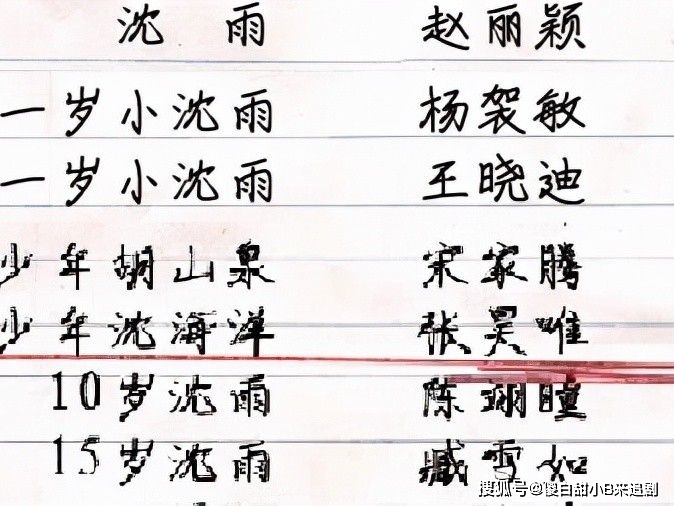 沈雨 赵丽颖
一岁小沈雨 杨袈敏
一岁小沈雨 王晓迪
少年胡山泉 宋家腾
少年沈海洋 张昊唯
10岁沈雨 陈翊曈
15岁沈雨 臧雪如
搜狐号@傻白甜小B来追剧